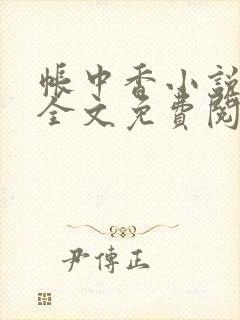 帳中香小説
全文免費閱
尹傳正